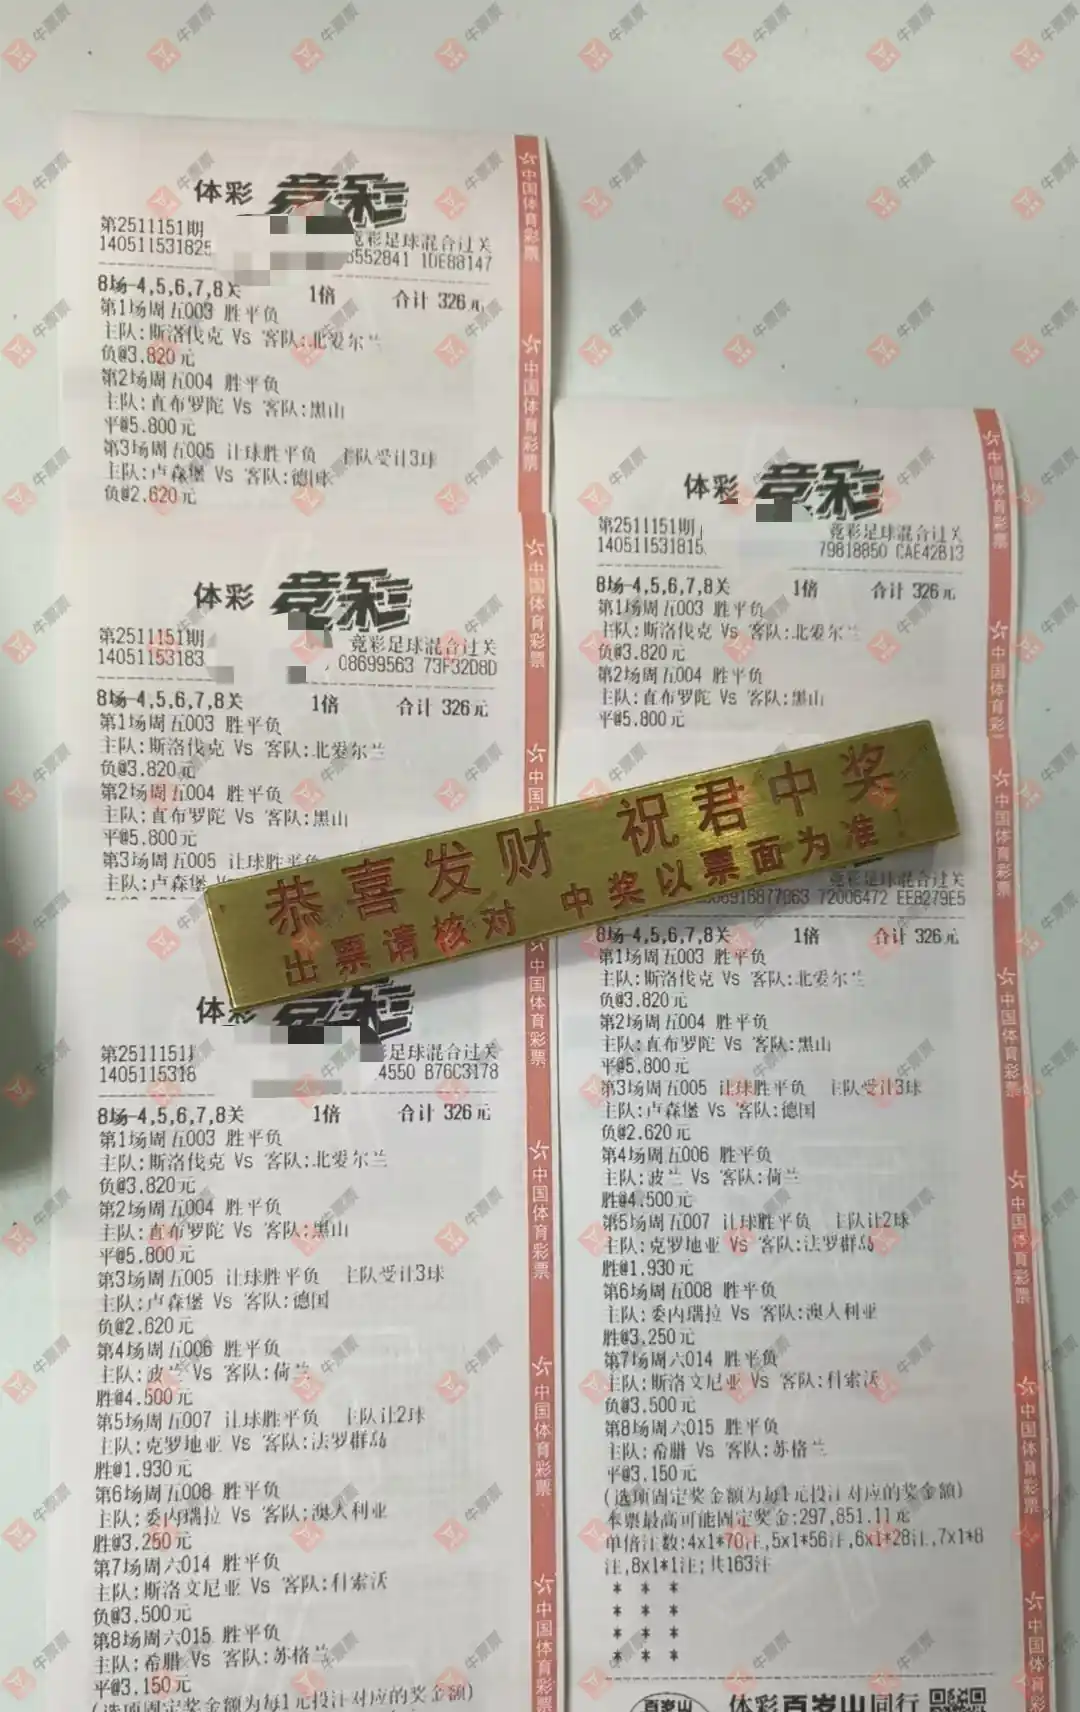 体彩 竞彩
第2511151期
竞彩足球混合过关
140511531825
6552841 1DE88147
8场-4,5,6,7,8关 1倍 合计 326元
第1场周五003 胜平负
主队:斯洛伐克 Vs 客队:北爱尔兰
负@3.820元
第2场周五004 胜平负
主队:直布罗陀 Vs 客队:黑山
平@5.800元
第3场周五005 让球胜平负 主队受让3球
主队:卢森堡 Vs 客队:德国
负@2.620元
体彩 竞彩
第2511151期
竞彩足球混合过关
14051153183
08699563 73F32D8D
8场-4,5,6,7,8关 1倍 合计 326元
第1场周五003 胜平负
主队:斯洛伐克 Vs 客队:北爱尔兰
负@3.820元
第2场周五004 胜平负
主队:直布罗陀 Vs 客队:黑山
平@5.800元
第3场周五005 让球胜平负
主队:卢森堡
体彩 竞彩
第2511151
足球混合过关
1405115318
4550 B76C3178
8场-4,5,6,7,8关 1倍 合计 326元
第1场周五003 胜平负
主队:斯洛伐克 Vs 客队:北爱尔兰
负@3.820元
第2场周五004 胜平负
主队:直布罗陀 Vs 客队:黑山
平@5.800元
第3场周五005 让球胜平负 主队受让3球
主队:卢森堡 Vs 客队:德国
负@2.620元
第4场周五006 胜平负
主队:波兰 Vs 客队:荷兰
胜@4.500元
第5场周五007 让球胜平负 主队让2球
主队:克罗地亚 Vs 客队:法罗群岛
胜@1.930元
第6场周五008 胜平负
主队:委内瑞拉 Vs 客队:澳大利亚
胜@3.250元
第7场周六014 胜平负
主队:斯洛文尼亚 Vs 客队:科索沃
负@3.500元
第8场周六015 胜平负
主队:希腊 Vs 客队:苏格兰
平@3.150元
(选项固定奖金额为每1元投注对应的奖金额)
体彩 竞彩
第2511151期
竞彩足球混合过关
140511531815
79818850 CAE42B13
8场-4,5,6,7,8关 1倍 合计 326元
第1场周五003 胜平负
主队:斯洛伐克 Vs 客队:北爱尔兰
负@3.820元
第2场周五004 胜平负
主队:直布罗陀 Vs 客队:黑山
平@5.800元
恭喜发财 祝君中奖
出票请核对 中奖以票面为准!
竞彩足球混合过关
6916877063 72006472 EE8279E5
8场-4,5,6,7,8关 1倍 合计 326元
第1场周五003 胜平负
主队:斯洛伐克 Vs 客队:北爱尔兰
负@3.820元
第2场周五004 胜平负
主队:直布罗陀 Vs 客队:黑山
平@5.800元
第3场周五005 让球胜平负 主队受让3球
主队:卢森堡 Vs 客队:德国
负@2.620元
第4场周五006 胜平负
主队:波兰 Vs 客队:荷兰
胜@4.500元
第5场周五007 让球胜平负 主队让2球
主队:克罗地亚 Vs 客队:法罗群岛
胜@1.930元
第6场周五008 胜平负
主队:委内瑞拉 Vs 客队:澳大利亚
胜@3.250元
第7场周六014 胜平负
主队:斯洛文尼亚 Vs 客队:科索沃
负@3.500元
第8场周六015 胜平负
主队:希腊 Vs 客队:苏格兰
平@3.150元
(选项固定奖金额为每1元投注对应的奖金额)
本票最高可能固定奖金:297,851.11元
单倍注数:4x1*70注,5x1*56注,6x1*28注,7x1*8
注,8x1*1注;共163注
* * *
* * *
* * *
* * *
百岁山 体彩百岁山同行
中国体育彩票
牛票票